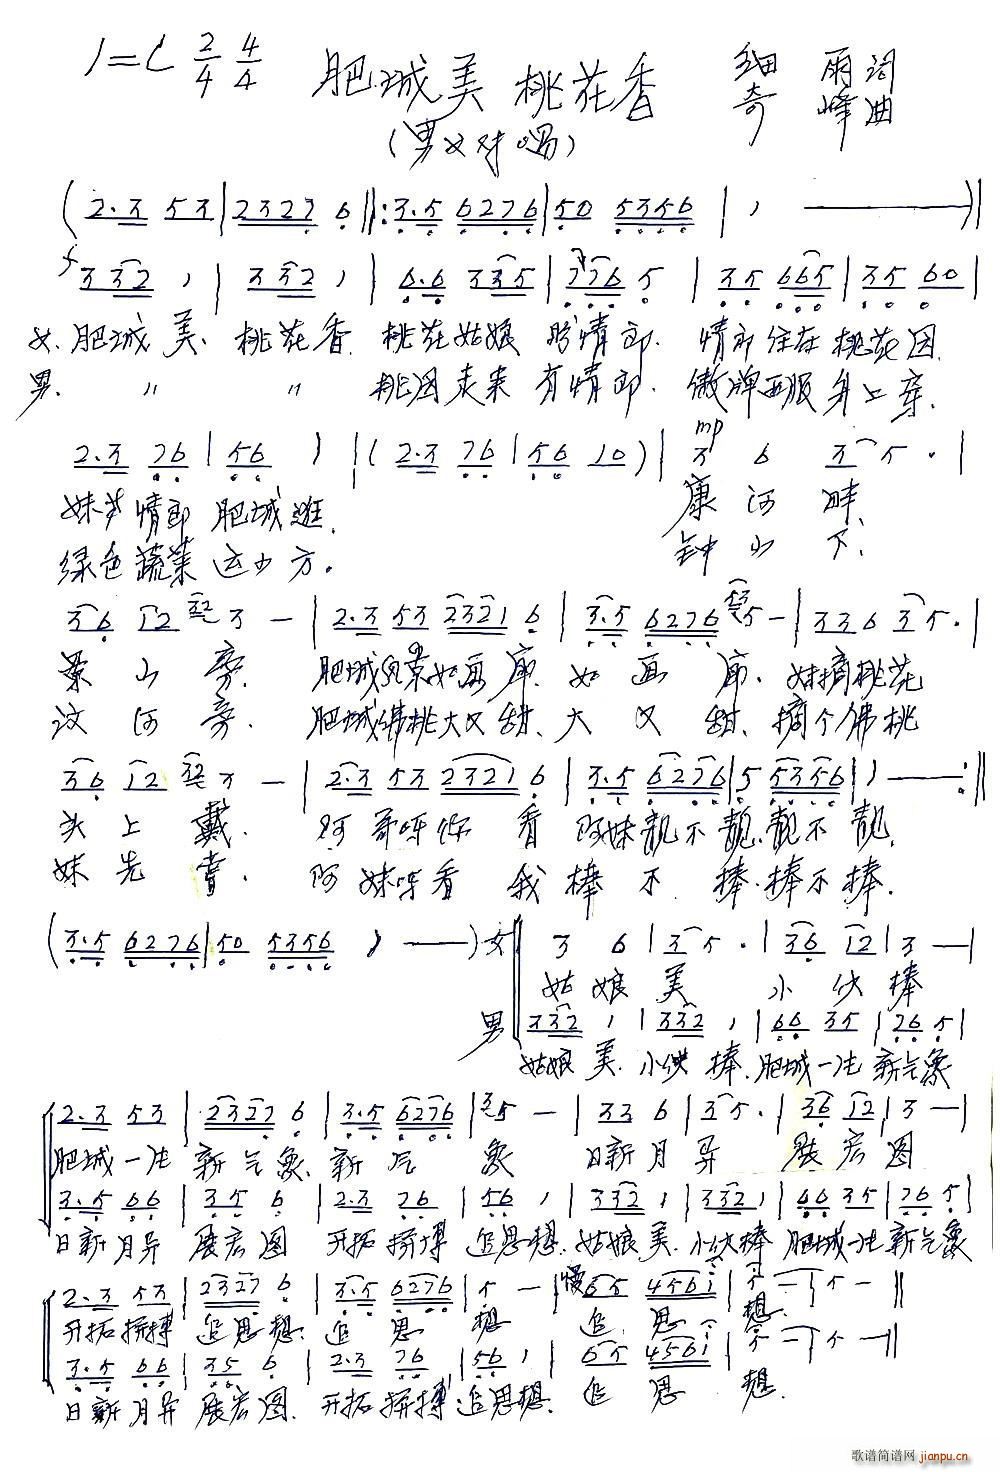 1=C 2/4 4/4 肥城美 桃花香 细雨词
奇峰曲
(男女对唱)
(2.3 53|2327 6||:3.5 6276|50 5356|1 ———)||
f 3 32 1|3 32 1|6.6 335|776 5|35 665|35 60|
女.肥城美.桃花香.桃花姑娘盼情郎.情郎住在桃花园.
男. 〃 〃 桃园走来有情郎.傲牌西服身上穿.
2.3 76|56 1||(2.3 76|56 10)|mp 3 6 3 5.|
妹 情郎肥城逛. 康河畔.
绿色蔬菜运 方. 钟山下.
36 12 32 3 —|2.3 53 2321 6|3.5 6276 5 —|336 35.|
景山旁.肥城风景如画廊.如画廊.妹摘桃花
汶河旁.肥城佛桃大又甜、大又甜、摘个佛桃
36 12 32 3 —|2.3 53 2321 6|3.5 6276|5 5356|1 ——:||
头上戴.阿哥呀你看阿妹靓不靓.靓不靓.
妹先尝.阿妹呀看我棒不棒.棒不棒.
(3.5 6276|50 5356 1 ——) 女 3 6|3 5.|36 12|3 —|
姑娘美小伙棒
男 332 1|332 1|66 35|76 5|
姑娘美.小伙棒.肥城一派新气象
2.3 53|2327 6|3.5 6276|5 —|33 6|3 5.|36 12|3 —|
肥城一派新气象.新气象 日新月异展宏图
3.5 66|35 6|2.3 76|56 1|332 1|332 1|66 35|76 5|
日新月异展宏图 开拓拼搏追思想.姑娘美.小伙棒肥城一派新气象
2.3 53|2327 6|3.5 6276|5 —|慢 65 4561|5 —|5 —||
开拓拼搏追思想.追思想 追.思.想.
3.5 66|35 6|2.3 76|56 1|65 4561|5 —|5 —||
日新月异展宏图.开拓拼搏追思想.追思想.
歌谱简谱网 jianpu.cn